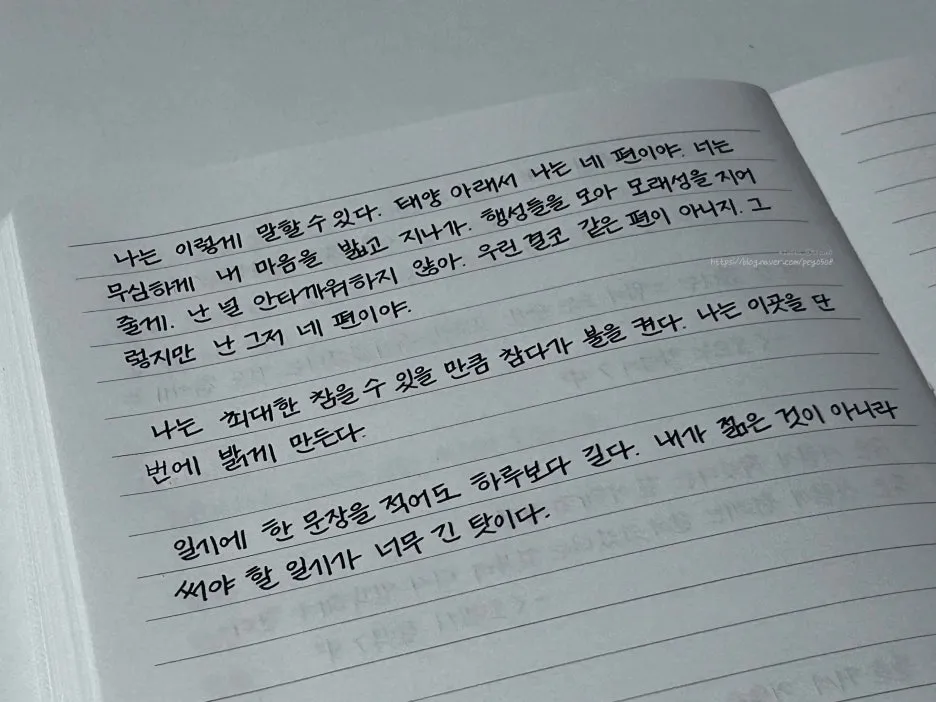 나는 이렇게 말할 수 있다. 태양 아래서 나는 네 편이야. 너는
무심하게 내 마음을 밟고 지나가. 행성들을 모아 모래성을 지어
줄게. 난 널 안타까워하지 않아. 우린 결코 같은 편이 아니지. 그
렇지만 난 그저 네 편이야.
나는 최대한 참을 수 있을 만큼 참다가 불을 켠다. 나는 이곳을 단
번에 밝게 만든다.
일기에 한 문장을 적어도 하루보다 길다. 내가 젊은 것이 아니라
써야 할 일기가 너무 긴 탓이다.